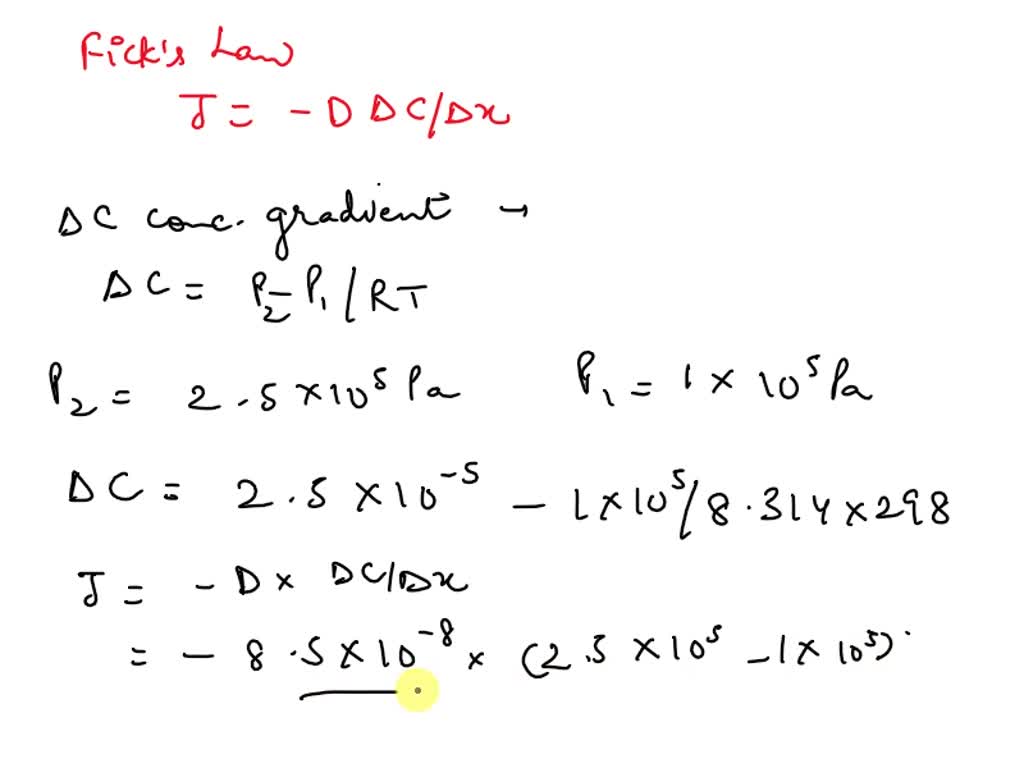 Fick's Law
J = - D ΔC/Δx
ΔC conc. gradient →
ΔC = P₂ - P₁ / RT
P₂ = 2.5 × 10⁵ Pa P₁ = 1 × 10⁵ Pa
ΔC = 2.5 × 10⁻⁵ - 1 × 10⁵ / 8.314 × 298
J = - D × ΔC/Δx
= - 8.5 × 10⁻⁸ × (2.5 × 10⁵ - 1 × 10⁵)